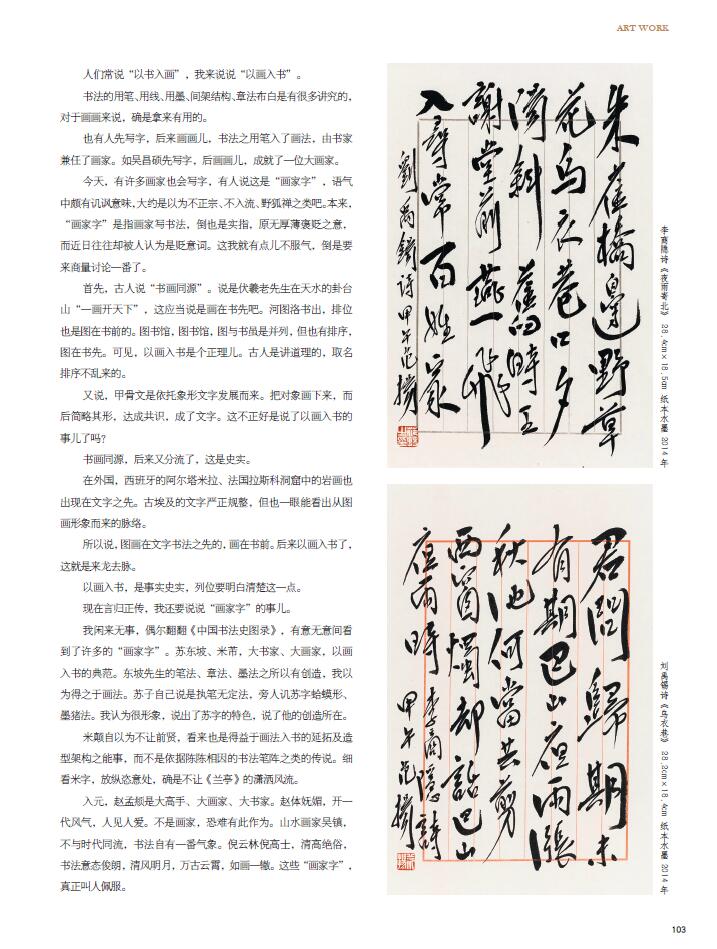 ART WORK
人们常说“以书入画”，我来说说“以画入书”。
书法的用笔、用线、用墨、间架结构、章法布白是有很多讲究的，
对于画画来说，确是拿来有用的。
也有人先写字，后来画画儿，书法之用笔入了画法，由书家
兼任了画家。如吴昌硕先写字，后画画儿，成就了一位大画家。
今天，有许多画家也会写字，有人说这是“画家字”，语气
中颇有讥讽意味，大约是以为不正宗、不入流、野狐禅之类吧。本来，
“画家字”是指画家写书法，倒也是实指，原无厚薄褒贬之意，
而近日往往却被人认为是贬意词。这我就有点儿不服气，倒是要
来商量讨论一番了。
首先，古人说“书画同源”。说是伏羲老先生在天水的卦台
山“一画开天下”，这应当说是画在书先吧。河图洛书出，排位
也是图在书前的。图书馆，图书馆，图与书虽是并列，但也有排序，
图在书先。可见，以画入书是个正理儿。古人是讲道理的，取名
排序不乱来的。
又说，甲骨文是依托象形文字发展而来。把对象画下来，而
后简略其形，达成共识，成了文字。这不正好是说了以画入书的
事儿了吗？
书画同源，后来又分流了，这是史实。
在外国，西班牙的阿尔塔米拉、法国拉斯科洞窟中的岩画也
出现在文字之先。古埃及的文字严正规整，但也一眼能看出从图
画形象而来的脉络。
所以说，图画在文字书法之先的，画在书前。后来以画入书了，
这就是来龙去脉。
以画入书，是事实史实，列位要明白清楚这一点。
现在言归正传，我还要说说“画家字”的事儿。
我闲来无事，偶尔翻翻《中国书法史图录》，有意无意间看
到了许多的“画家字”。苏东坡、米芾，大书家、大画家，以画
入书的典范。东坡先生的笔法、章法、墨法之所以有创造，我以
为得之于画法。苏子自己说是执笔无定法，旁人讥苏字蛤蟆形、
墨猪法。我认为很形象，说出了苏字的特色，说了他的创造所在。
米颠自以为不让前贤，看来也是得益于画法入书的延拓及造
型架构之能事，而不是依据陈陈相因的书法笔阵之类的传说。细
看米字，放纵恣意处，确是不让《兰亭》的潇洒风流。
入元，赵孟頫是大高手、大画家、大书家。赵体妩媚，开一
代风气，人见人爱。不是画家，恐难有此作为。山水画家吴镇，
不与时代同流，书法自有一番气象。倪云林倪高士，清高绝俗，
书法意态俊朗，清风明月，万古云霄，如画一辙。这些“画家字”，
真正叫人佩服。
朱雀橋邊野草
花烏衣巷口夕
陽斜 舊時王
謝堂前燕飛
入尋常百姓家
劉禹錫詩甲午范揚
李商隐诗《夜雨寄北》 28.4cm×18.5cm 纸本水墨 2014年
君問歸期未
有期巴山夜雨漲
秋池何當共剪
西窗燭却話巴山
夜雨時 李商隱詩
甲午范揚
刘禹锡诗《乌衣巷》 28.2cm×18.4cm 纸本水墨 2014年
103